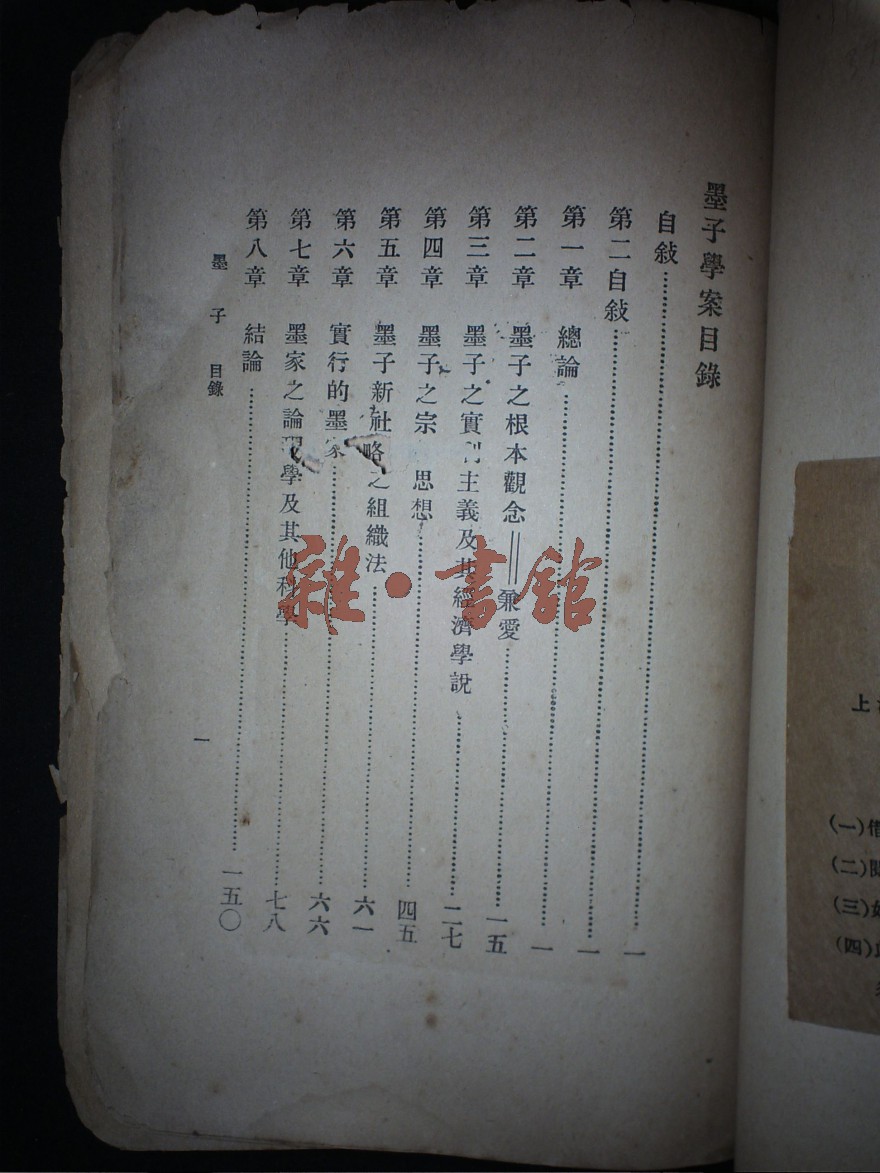 墨子學案目錄
自敍……一
第二自敍……一
第一章 總論……一
第二章 墨子之根本觀念——兼愛……一五
第三章 墨子之實 主義及其經濟學說……二七
第四章 墨子之宗 思想……四五
第五章 墨子新社 之組織法……六一
第六章 實行的墨家……六六
第七章 墨家之論 學及其他科學……七八
第八章 結論……一五〇
墨子 目錄
一
上
(一)
(二)
(三)
(四)
雜·書館